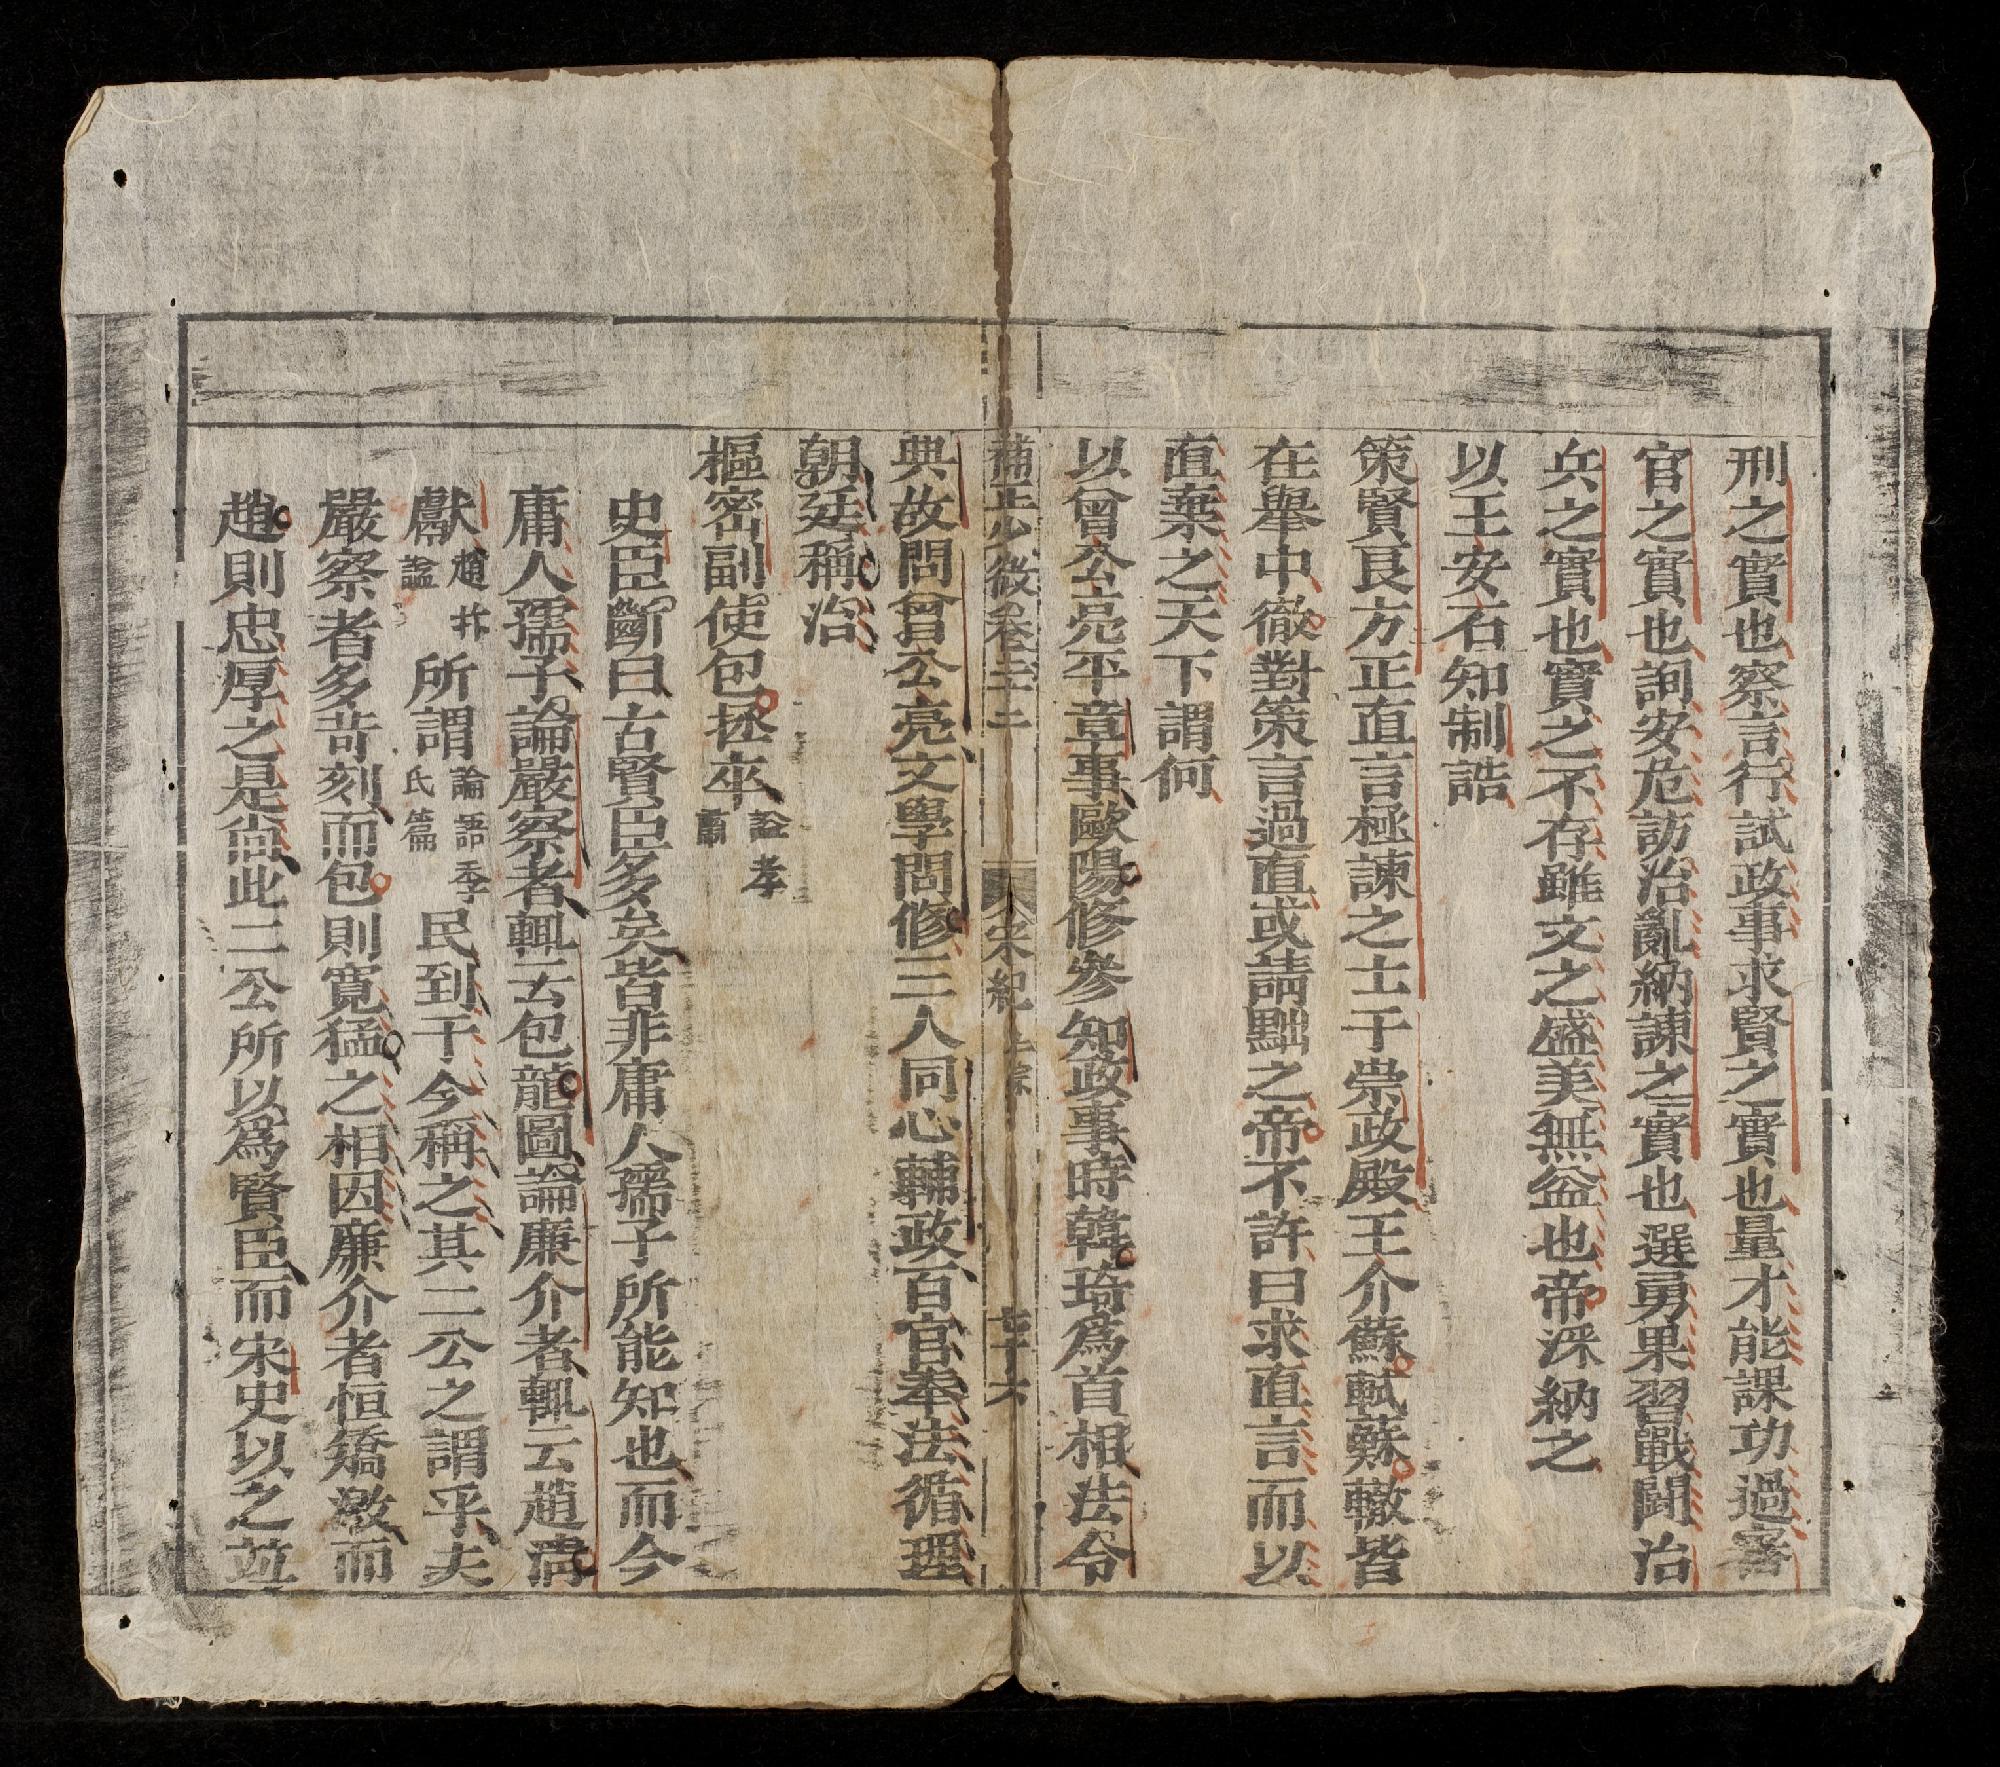 刑之實也察言行試政事求賢之實也量才能課功過審
官之實也詞安危訪治亂納諫之實也選勇果習戰鬪治
兵之實也實之不存雖文之盛美無益也帝深納之
以王安石知制誥
策賢良方正直言極諫之士于崇政殿王介蘇軾蘇轍皆
在舉中徹對策言過直或請黜之帝不許曰求直言而以
直棄之天下謂何
以曾公亮平章事歐陽修參知政事時韓琦爲首相法令
補正少微卷二十二 宋紀 七十六
典故問曾公亮文學問修三人同心輔政百官奉法循理
朝廷稱治
樞密副使包拯卒謚孝肅
史臣斷曰古賢臣多矣皆非庸人孺子所能知也而今
庸人孺子論嚴察者輒云包龍圖論廉介者輒云趙淸
獻趙抃謚所謂論語季氏篇民到于今稱之其二公之謂乎夫
嚴察者多苛刻而包則寛猛之相因廉介者恒矯激而
趙則忠厚之是尙此二公所以爲賢臣而宋史以之竝